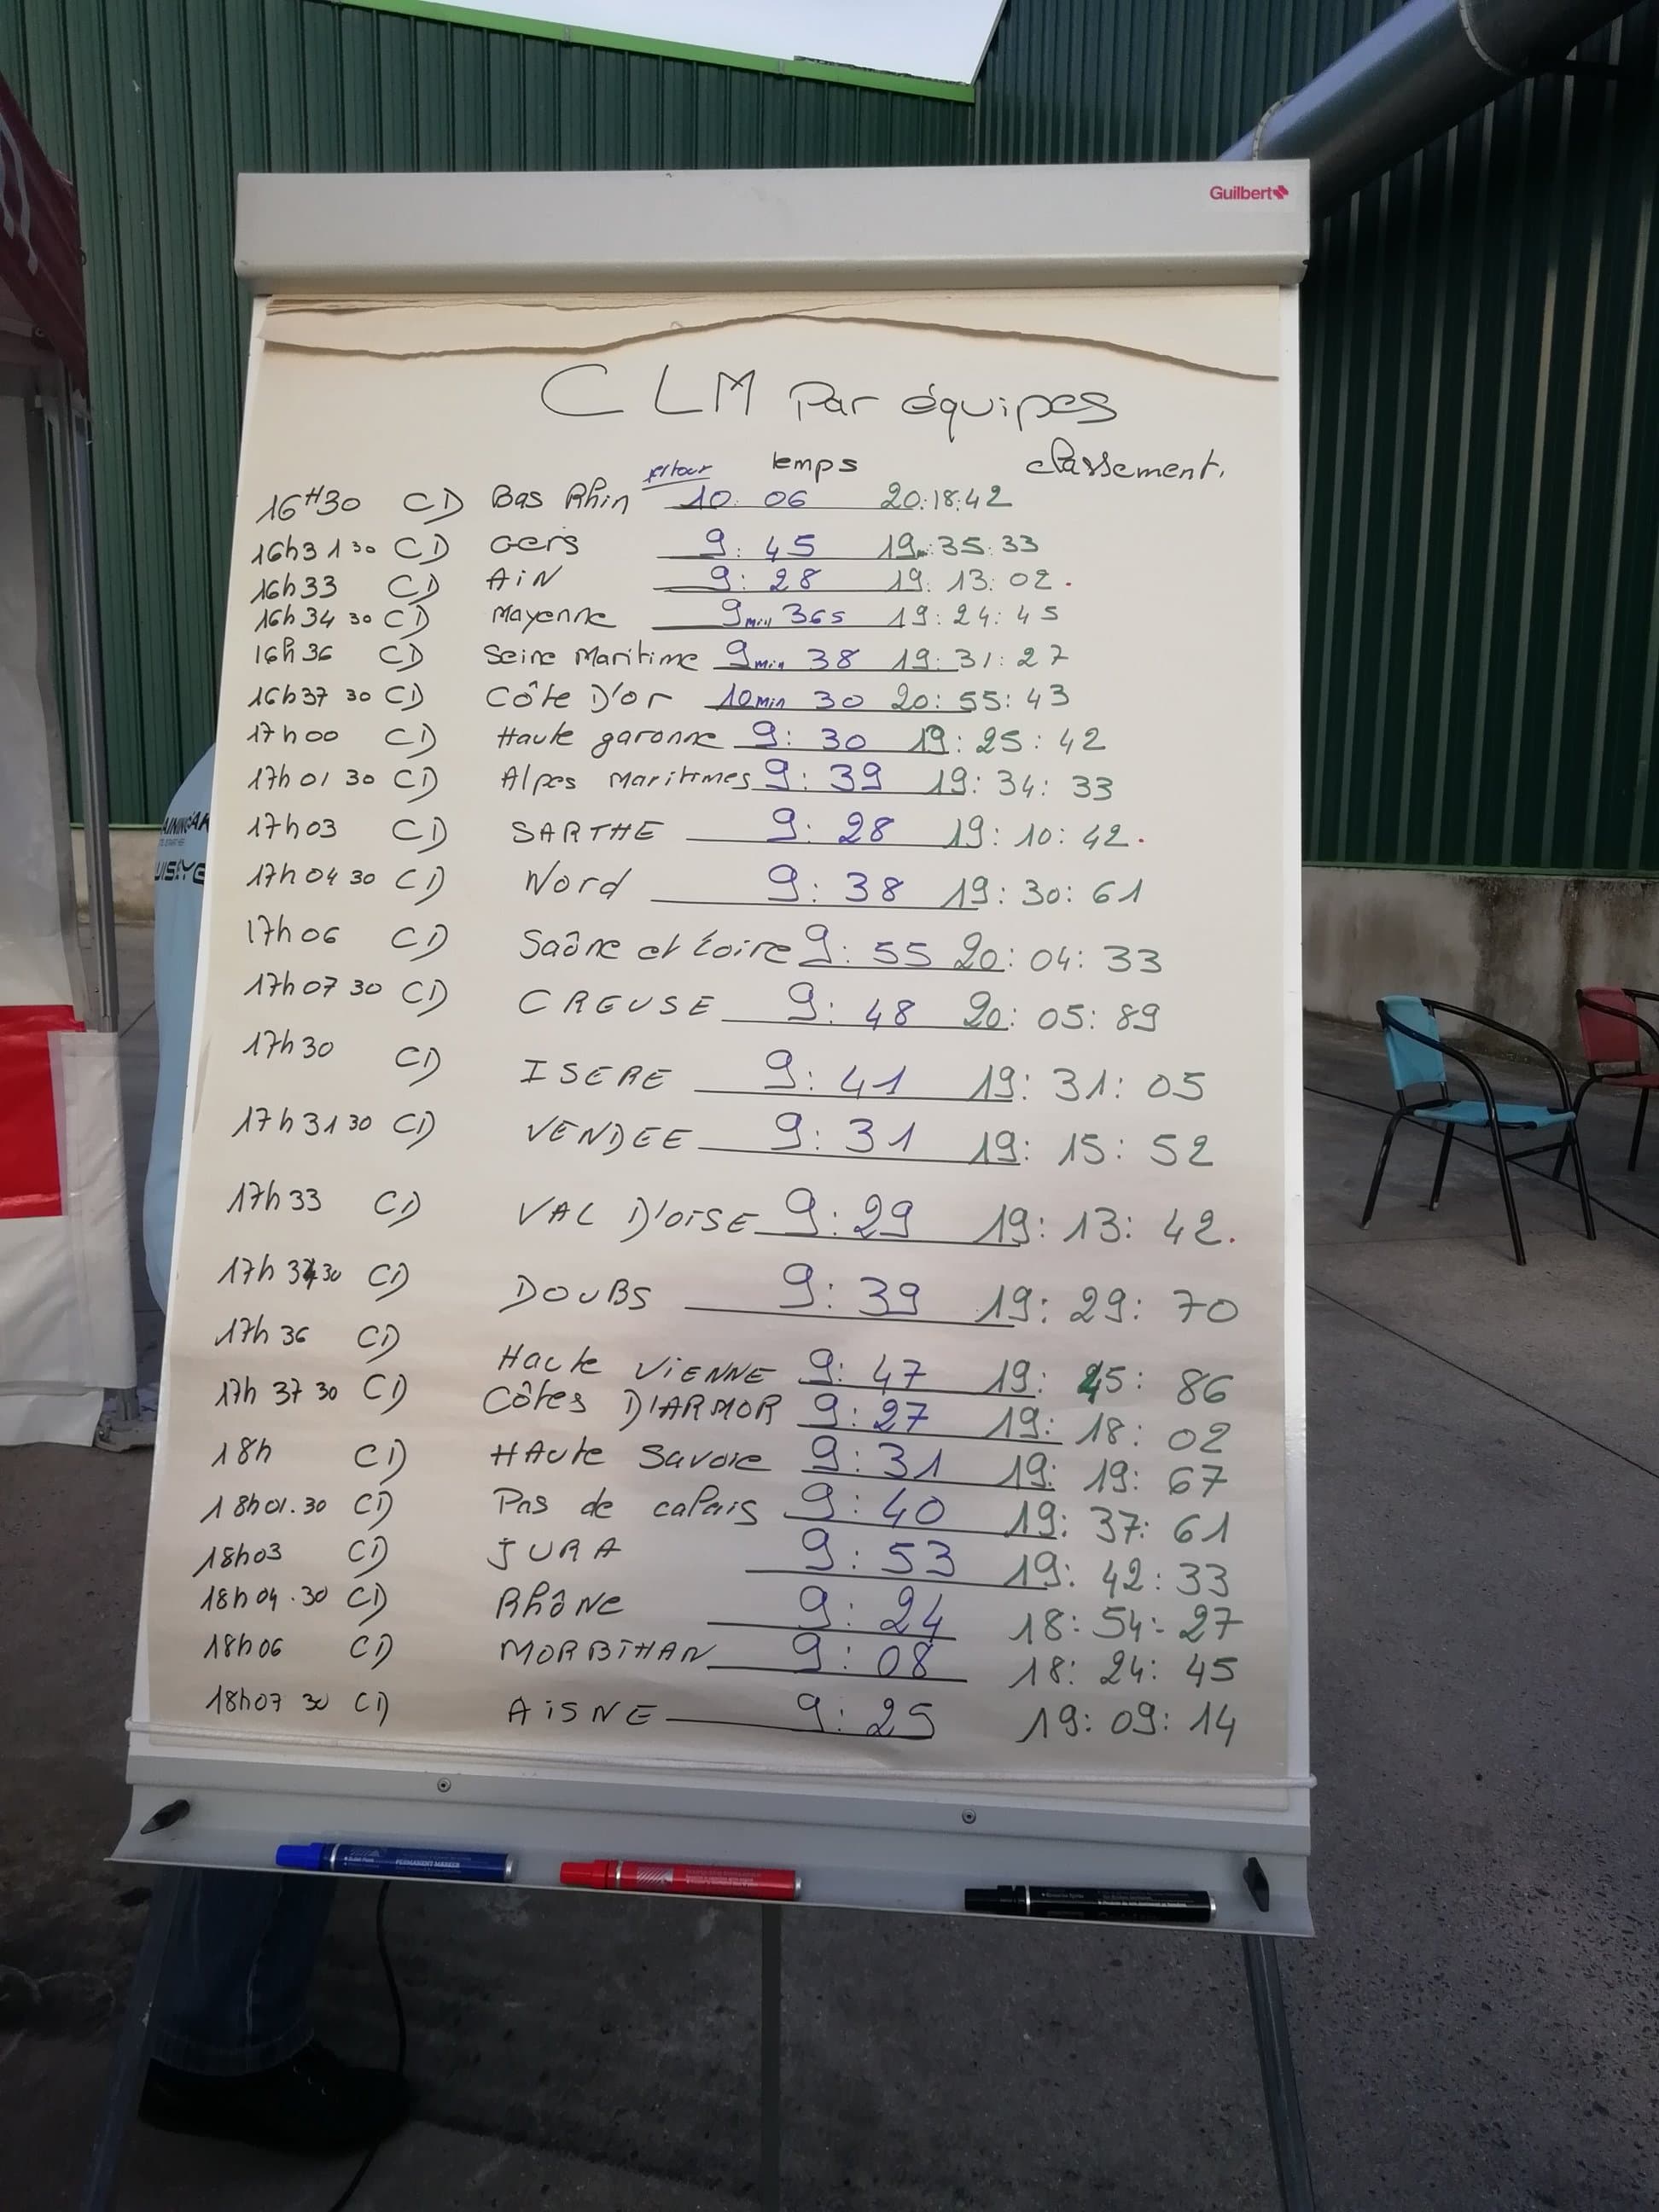 Guilbert
CLM Par équipes
temps classement.
16H30 CD Bas Rhin 10:06 20:18:42
16h31 30 CD Gers 9:45 19:35:33
16h33 CD AiN 9:28 19:13:02.
16h34 30 CD Mayenne 9min 36s 19:24:45
16h36 CD Seine Maritime 9min 38 19:31:27
16h37 30 CD Côte D'or 10min 30 20:55:43
17h00 CD Haute garonne 9:30 19:25:42
17h01 30 CD Alpes Maritimes 9:39 19:34:33
17h03 CD SARTHE 9:28 19:10:42.
17h04 30 CD Nord 9:38 19:30:61
17h06 CD Saône et Loire 9:55 20:04:33
17h07 30 CD CREUSE 9:48 20:05:89
17h30 CD ISERE 9:41 19:31:05
17h31 30 CD VENDEE 9:31 19:15:52
17h33 CD VAL D'OiSE 9:29 19:13:42.
17h34 30 CD DOUBS 9:39 19:29:70
17h36 CD Haute ViENNE 9:47 19:45:86
17h37 30 CD Côtes D'ARMOR 9:27 19:18:02
18h CD HAute Savoie 9:31 19:19:67
18h01.30 CD Pas de calais 9:40 19:37:61
18h03 CD JURA 9:53 19:42:33
18h04.30 CD RhôNe 9:24 18:54:27
18h06 CD MORBIHAN 9:08 18:24:45
18h07 30 CD AiSNE 9:25 19:09:14
PERMANENT MARKER